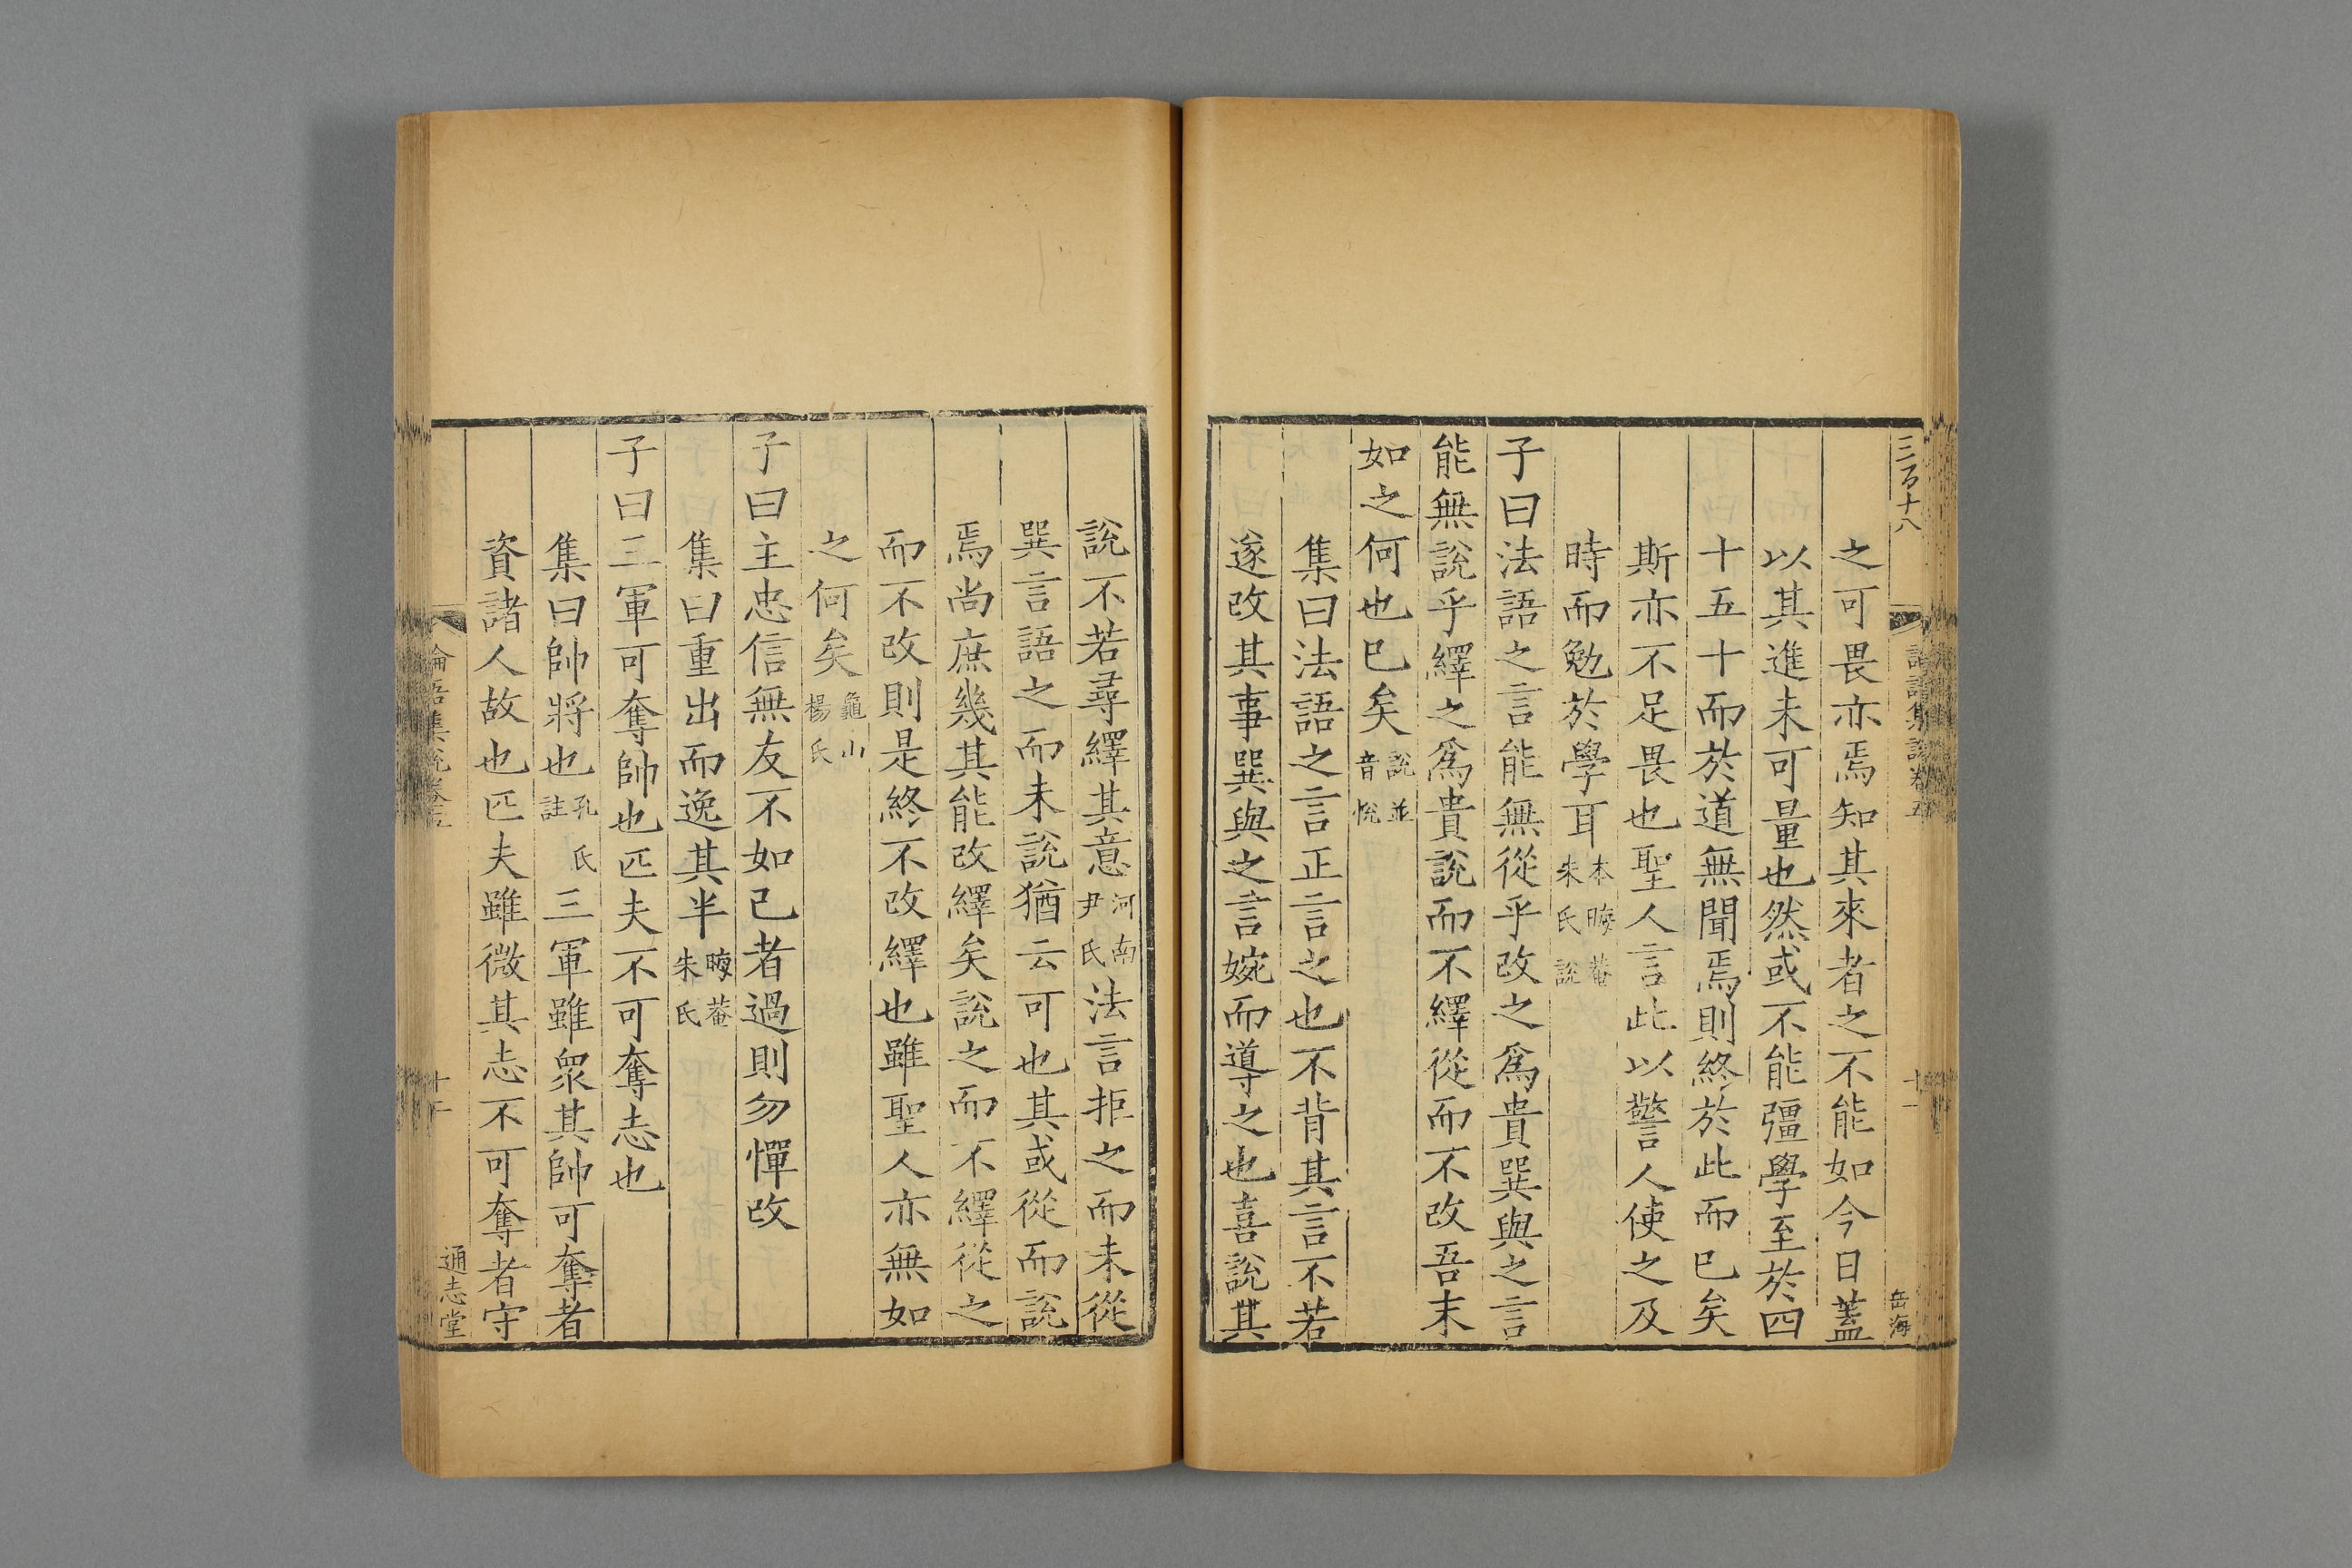 三百十八
論語集說卷五
十一
岳海
之可畏亦焉知其來者之不能如今日蓋
以其進未可量也然或不能彊學至於四
十五十而於道無聞焉則終於此而已矣
斯亦不足畏也聖人言此以警人使之及
時而勉於學耳本晦菴朱氏說
子曰法語之言能無從乎改之爲貴巽與之言
能無說乎繹之爲貴說而不繹從而不改吾末
如之何也巳矣說並音悅
集曰法語之言正言之也不背其言不若
遂改其事巽與之言婉而導之也喜說其
說不若尋繹其意河南尹氏法言拒之而未從
巽言語之而未說猶云可也其或從而說
焉尚庶幾其能改繹矣說之而不繹從之
而不改則是終不改繹也雖聖人亦無如
之何矣龜山楊氏
子曰主忠信無友不如己者過則勿憚改
集曰重出而逸其半晦菴朱氏
子曰三軍可奪帥也匹夫不可奪志也
集曰帥將也孔氏註三軍雖眾其帥可奪者
資諸人故也匹夫雖微其志不可奪者守
論語集說卷五
通志堂